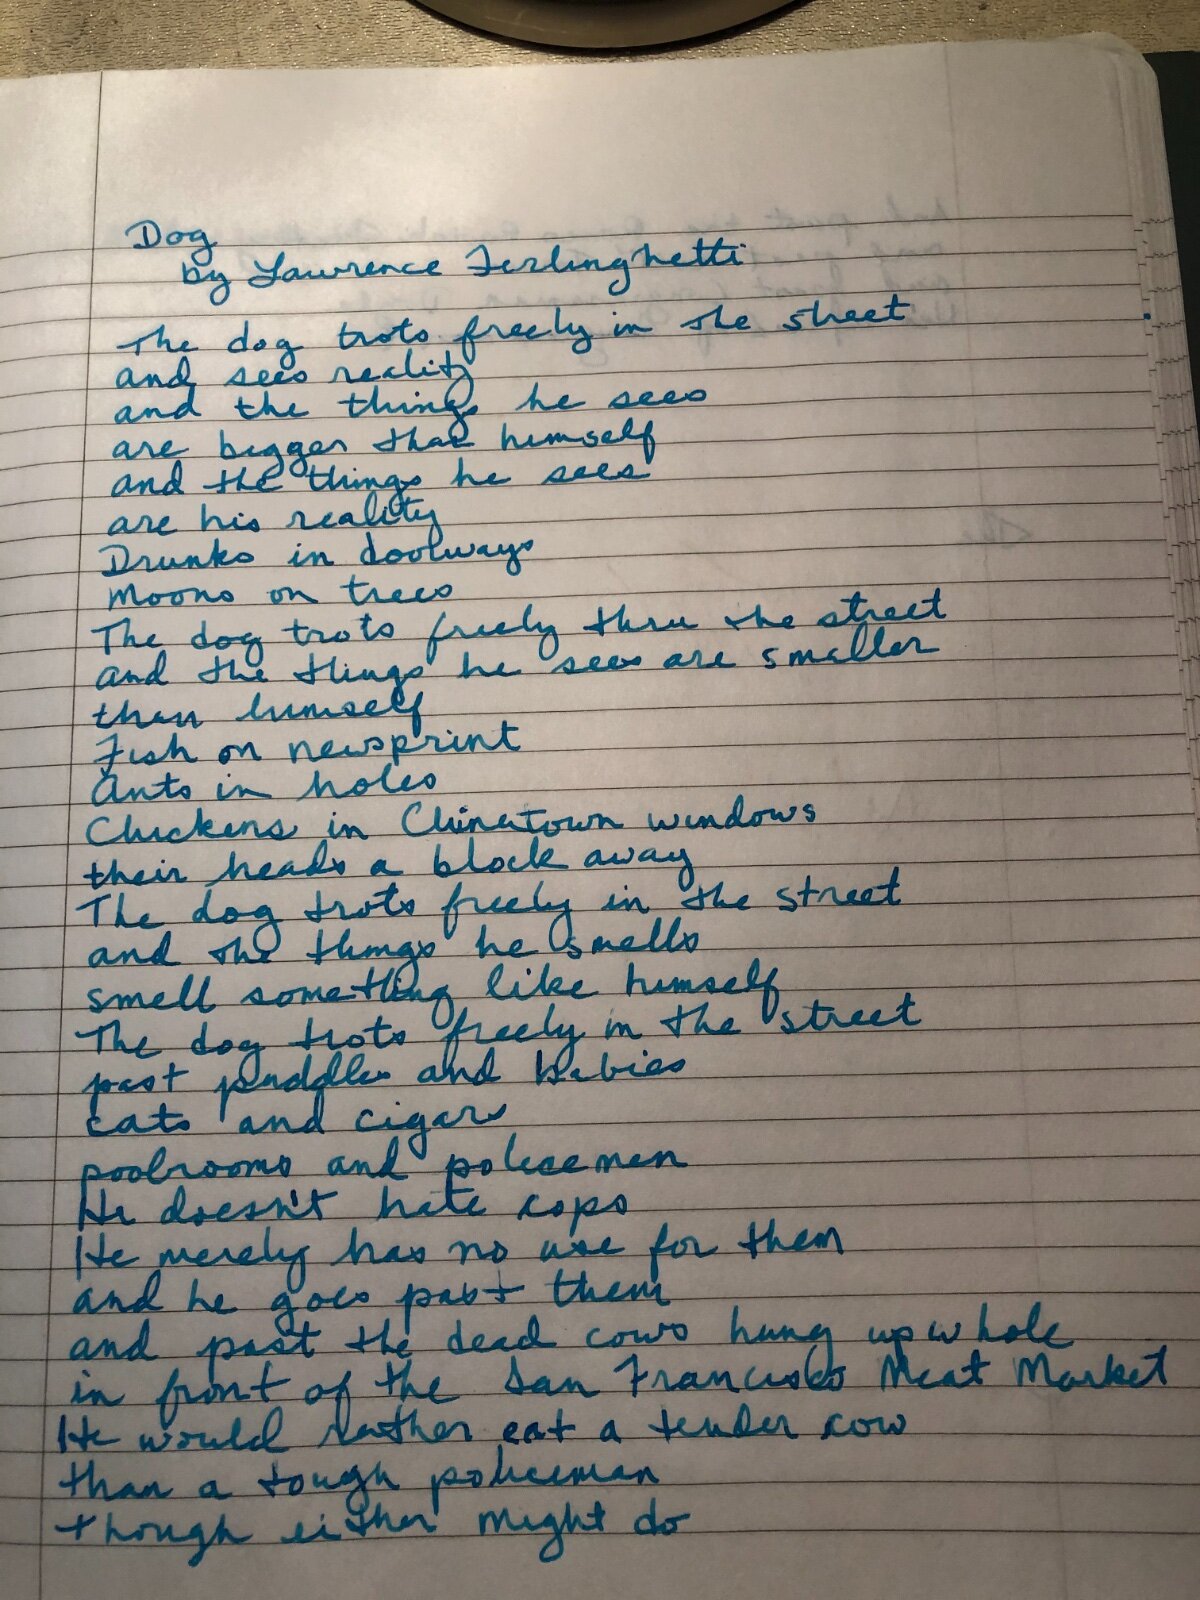 Dog
by Lawrence Ferlinghetti
The dog trots freely in the street
and sees reality
and the things he sees
are bigger than himself
and the things he sees
are his reality
Drunks in doorways
Moons on trees
The dog trots freely thru the street
and the things he sees are smaller
than himself
Fish on newsprint
Ants in holes
Chickens in Chinatown windows
their heads a block away
The dog trots freely in the street
and the things he smells
smell something like himself
The dog trots freely in the street
past puddles and babies
cats and cigars
poolrooms and policemen
He doesn't hate cops
He merely has no use for them
and he goes past them
and past the dead cows hung up whole
in front of the San Francisco Meat Market
He would rather eat a tender cow
than a tough policeman
though either might do